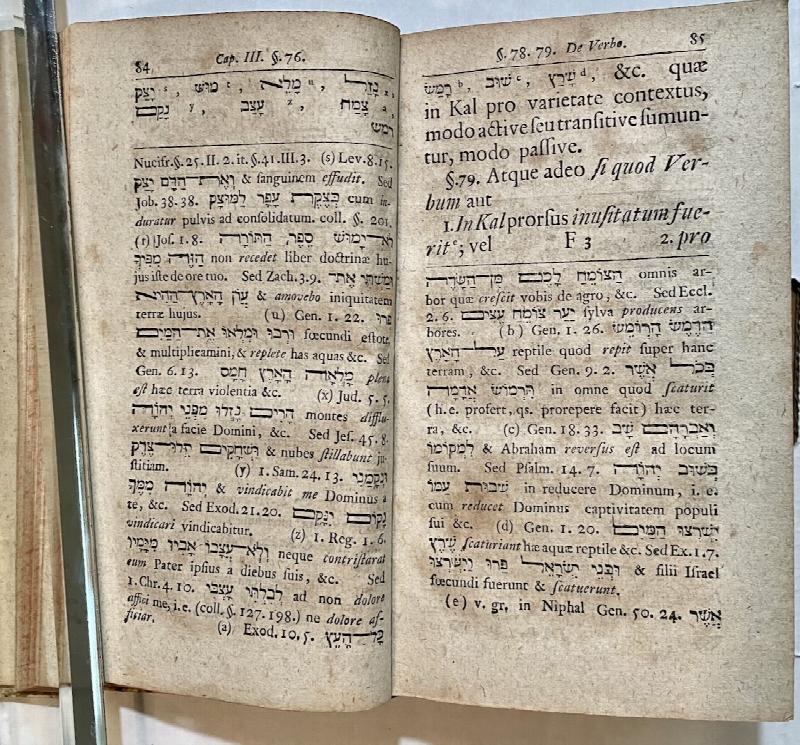 84 Cap. III. §. 76.
יָצַק s , מוּשׁ t , מָלֵא u , נָזַל x ,
נָקַם y , עָצַב z , צָמַח a ,
רמש
Nucifr. §. 25. II. 2. it. §. 41. III. 3. (s) Lev. 8. 15.
וְאֶת־הַדָּם יָצַק & sanguinem effudit. Sed
Job. 38. 38. בְּצֶקֶת עָפָר לַמּוּצָק cum in-
duratur pulvis ad consolidatum. coll. §. 201.
(t) Jos. 1. 8. לֹא־יָמוּשׁ סֵפֶר הַתּוֹרָה
הַזֶּה מִפִּיךָ non recedet liber doctrinæ hu-
jus iste de ore tuo. Sed Zach. 3. 9. וּמַשְׁתִּי אֶת־
עֲוֹן הָאָרֶץ הַהִיא & amovebo iniquitatem
terræ hujus. (u) Gen. 1. 22. פְּרוּ
וּרְבוּ וּמִלְאוּ אֶת־הַמַּיִם fœcundi estote
& multiplicamini, & replete has aquas &c. Sed
Gen. 6. 13. מָלְאָה הָאָרֶץ חָמָס plena
est hæc terra violentia &c. (x) Jud. 5. 5.
הָרִים נָזְלוּ מִפְּנֵי יְהוָֹה montes difflu-
xerunt a facie Domini, &c. Sed Jes. 45. 8.
וּשְׁחָקִים יִזְּלוּ־צֶדֶק & nubes stillabunt ju-
stitiam. (y) 1. Sam. 24. 13. וּנְקָמַנִי
יְהוָֹה מִמֶּךָּ & vindicabit me Dominus a
te, &c. Sed Exod. 21. 20. נָקֹם יִנָּקֵם
vindicari vindicabitur. (z) 1. Reg. 1. 6.
וְלֹא־עֲצָבוֹ אָבִיו מִיָּמָיו neque contristarat
eum Pater ipsius a diebus suis, &c. Sed
1. Chr. 4. 10. לְבִלְתִּי עָצְבִּי ad non dolore
affici me, i. e. (coll. §. 127. 198.) ne dolore af-
fictar. (a) Exod. 10, 5. כָּל־הָעֵץ
§. 78. 79. De Verbo. 85
רָמַשׂ b , שׁוּב c , שָׁרַץ d , &c. quæ
in Kal pro varietate contextus,
modo active seu transitive sumun-
tur, modo passive.
§. 79. Atque adeo si quod Ver-
bum aut
1. In Kal prorsus inusitatum fue-
rit e; vel F 3 2. pro
הַצּוֹמֵחַ לָכֶם מִן־הַשָּׂדֶה omnis ar-
bor quæ crescit vobis de agro, &c. Sed Eccl.
2. 6. יַעַר צוֹמֵחַ עֵצִים sylva producens ar-
bores. (b) Gen. 1. 26. הָרֶמֶשׂ הָרוֹמֵשׂ
עַל־הָאָרֶץ reptile quod repit super hanc
terram, &c. Sed Gen. 9. 2. בְּכֹל אֲשֶׁר
תִּרְמוֹשׂ אֲדָמָה in omne quod scaturit
(h. e. profert, qs. prorepere facit) hæc ter-
ra, &c. (c) Gen. 18. 33. וְאַבְרָהָם שָׁב
לִמְקוֹמוֹ & Abraham reversus est ad locum
suum. Sed Psalm. 14. 7. בְּשׁוּב יְהוָֹה
שְׁבוּת עַמּוֹ in reducere Dominum, i. e.
cum reducet Dominus captivitatem populi
sui &c. (d) Gen. 1. 20. יִשְׁרְצוּ הַמַּיִם
שֶׁרֶץ scaturiant hæ aquæ reptile &c. Sed Ex. 1. 7.
וּבְנֵי יִשְׂרָאֵל פָּרוּ וַיִּשְׁרְצוּ & filii Israel
fœcundi fuerunt & scatuerunt.
(e) v. gr. in Niphal Gen. 50. 24. אֲשֶׁר